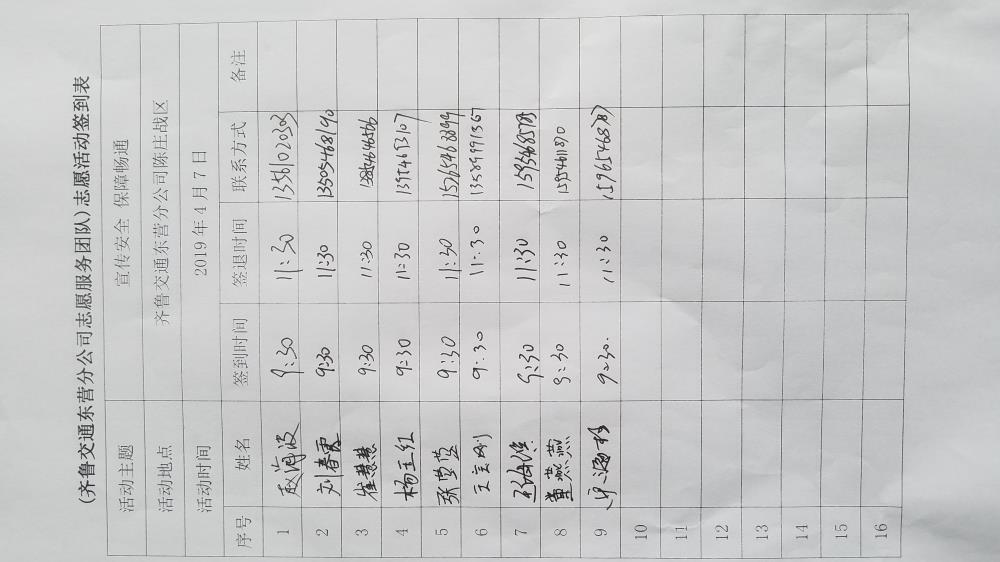 (齐鲁交通东营分公司志愿服务团队)志愿活动签到表
活动主题 宣传安全 保障畅通
活动地点 齐鲁交通东营分公司陈庄战区
活动时间 2019年4月7日
序号 姓名 签到时间 签退时间 联系方式 备注
1 赵海波 9:30 11:30 13561020303
2 刘春霞 9:30 11:30 13505468190
3 崔慧慧 9:30 11:30
4 杨玉红 9:30 11:30 13954693107
5 张莹莹 9:30 11:30 15265468899
6 9:30 11:30 13589991367
7 9:30 11:30
8 董燕燕 9:30 11:30
9 9:30. 11:30
10
11
12
13
14
15
16